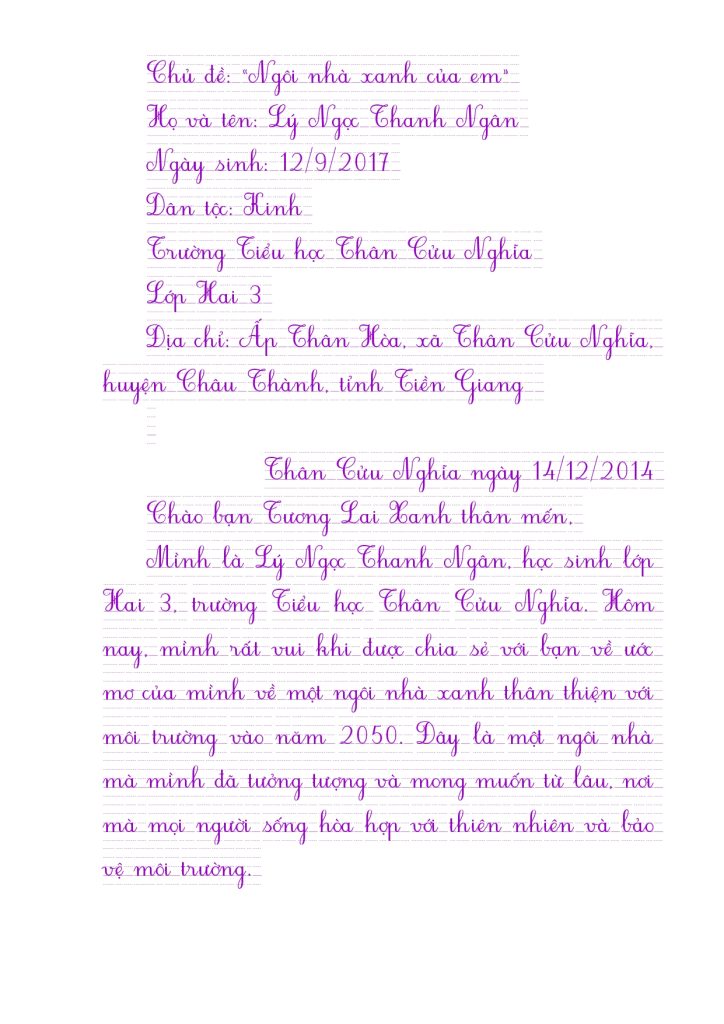 Chủ đề: "Ngôi nhà xanh của em"
Họ và tên: Lý Ngọc Thanh Ngân
Ngày sinh: 12/9/2017
Dân tộc: Kinh
Trường Tiểu học Thân Cửu Nghĩa
Lớp Hai 3
Địa chỉ: Ấp Thân Hòa, xã Thân Cửu Nghĩa,
huyện Châu Thành, tỉnh Tiền Giang
Thân Cửu Nghĩa ngày 14/12/2014
Chào bạn Tương Lai Xanh thân mến,
Mình là Lý Ngọc Thanh Ngân, học sinh lớp
Hai 3, trường Tiểu học Thân Cửu Nghĩa. Hôm
nay, mình rất vui khi được chia sẻ với bạn về ước
mơ của mình về một ngôi nhà xanh thân thiện với
môi trường vào năm 2050. Đây là một ngôi nhà
mà mình đã tưởng tượng và mong muốn từ lâu, nơi
mà mọi người sống hòa hợp với thiên nhiên và bảo
vệ môi trường.